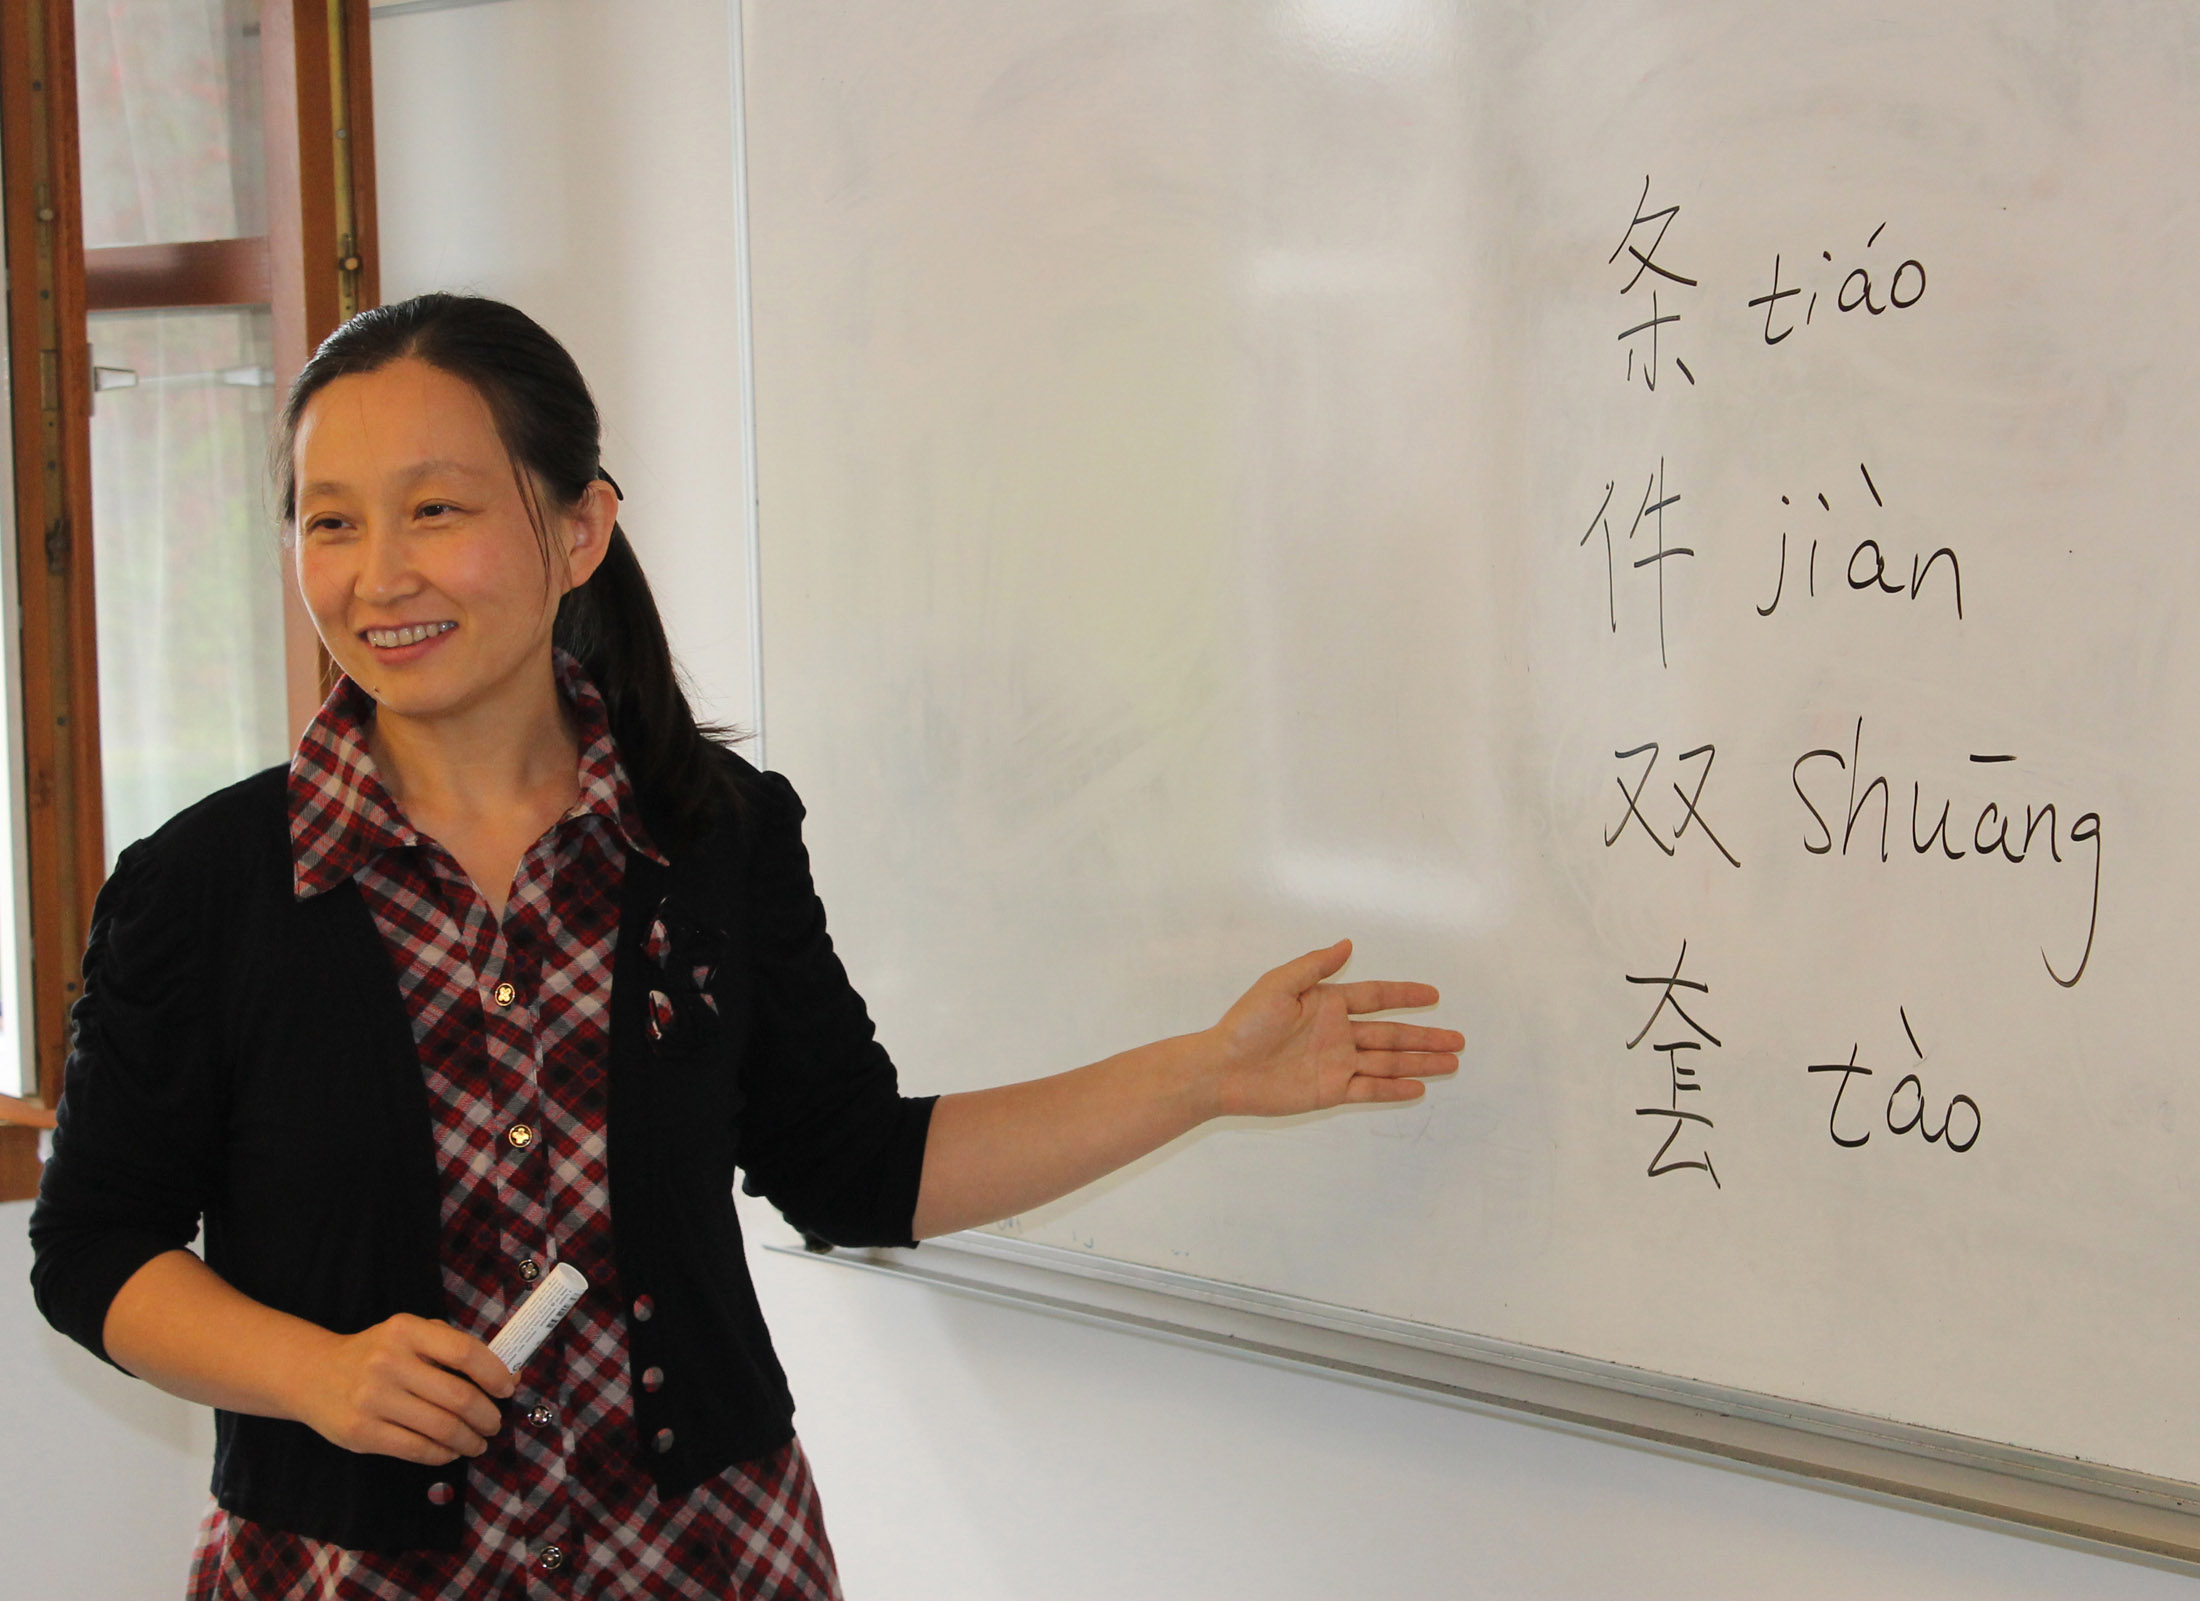 条 tiáo
件 jiàn
双 shuāng
套 tào